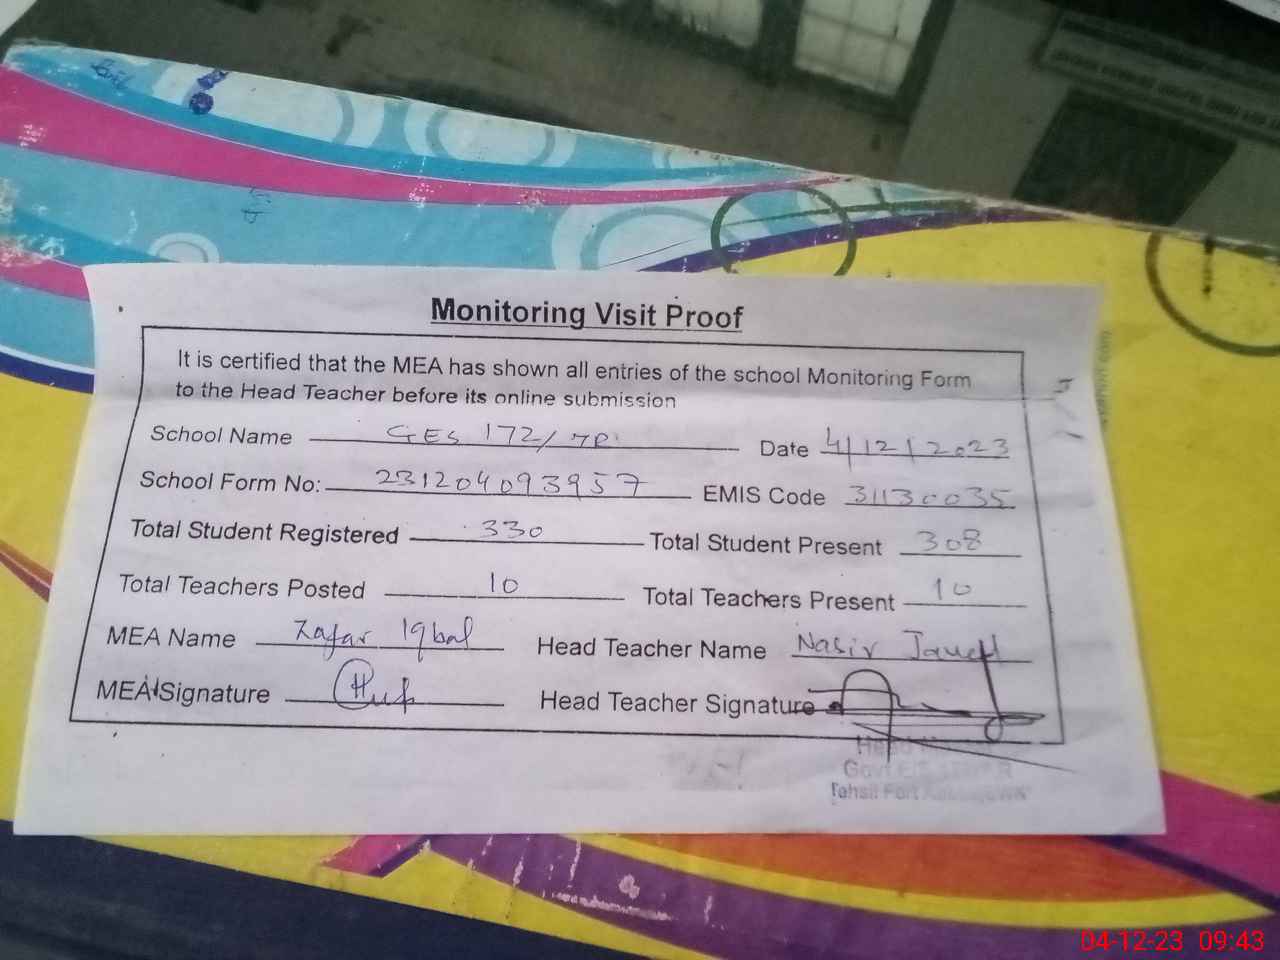 Monitoring Visit Proof
It is certified that the MEA has shown all entries of the school Monitoring Form
to the Head Teacher before its online submission
School Name GES 172/7R Date 4/12/2023
School Form No: 231204093957 EMIS Code 31130035
Total Student Registered 330 Total Student Present 308
Total Teachers Posted 10 Total Teachers Present 10
MEA Name Zafar Iqbal Head Teacher Name Nasir Javed
MEA Signature Head Teacher Signature
Head
Govt
Tehsil Fort
04-12-23 09:43